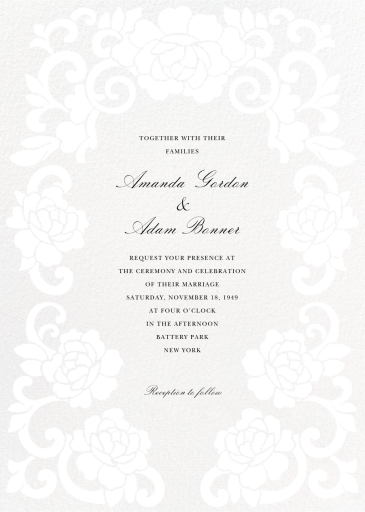 TOGETHER WITH THEIR
FAMILIES
Amanda Gordon
&
Adam Bonner
REQUEST YOUR PRESENCE AT
THE CEREMONY AND CELEBRATION
OF THEIR MARRIAGE
SATURDAY, NOVEMBER 18, 1949
AT FOUR O'CLOCK
IN THE AFTERNOON
BATTERY PARK
NEW YORK
Reception to follow